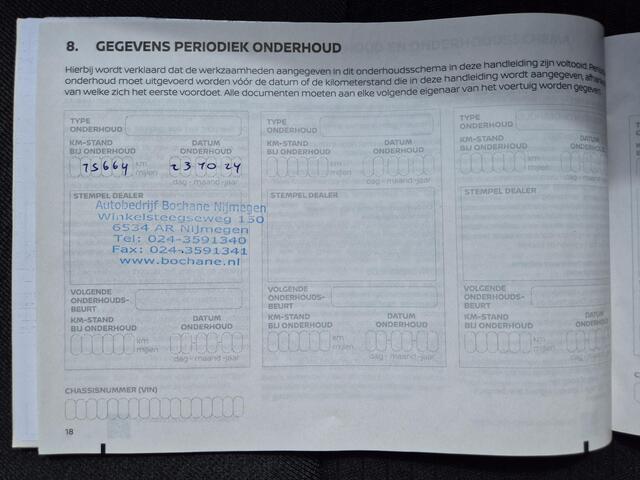 8. GEGEVENS PERIODIEK ONDERHOUD
Hierbij wordt verklaard dat de werkzaamheden aangegeven in dit onderhoudsschema in deze handleiding zijn voltooid.
onderhoud moet uitgevoerd worden vóór de datum of de kilometerstand die in deze handleiding wordt aangegeven,
van welke zich het eerste voordoet. Alle documenten moeten aan elke volgende eigenaar van het voertuig worden gegeven.
TYPE
ONDERHOUD
KM-STAND
BIJ ONDERHOUD
DATUM
ONDERHOUD
75664 km
mijlen
23 10 24
dag - maand - jaar
STEMPEL DEALER
Autobedrijf Bochane Nijmegen
Winkelsteegseweg 150
6534 AR Nijmegen
Tel: 024-3591340
Fax: 024-3591341
www.bochane.nl
VOLGENDE
ONDERHOUDS-
BEURT
KM-STAND
BIJ ONDERHOUD
DATUM
ONDERHOUD
km
mijlen
dag - maand - jaar
TYPE
ONDERHOUD
KM-STAND
BIJ ONDERHOUD
DATUM
ONDERHOUD
km
mijlen
dag - maand - jaar
STEMPEL DEALER
VOLGENDE
ONDERHOUDS-
BEURT
KM-STAND
BIJ ONDERHOUD
DATUM
ONDERHOUD
km
mijlen
dag - maand - jaar
TYPE
ONDERHOUD
KM-STAND
BIJ ONDERHOUD
km
mijlen
STEMPEL DEALER
VOLGENDE
ONDERHOUDS-
BEURT
KM-STAND
BIJ ONDERHOUD
km
mijlen
CHASSISNUMMER (VIN)
18